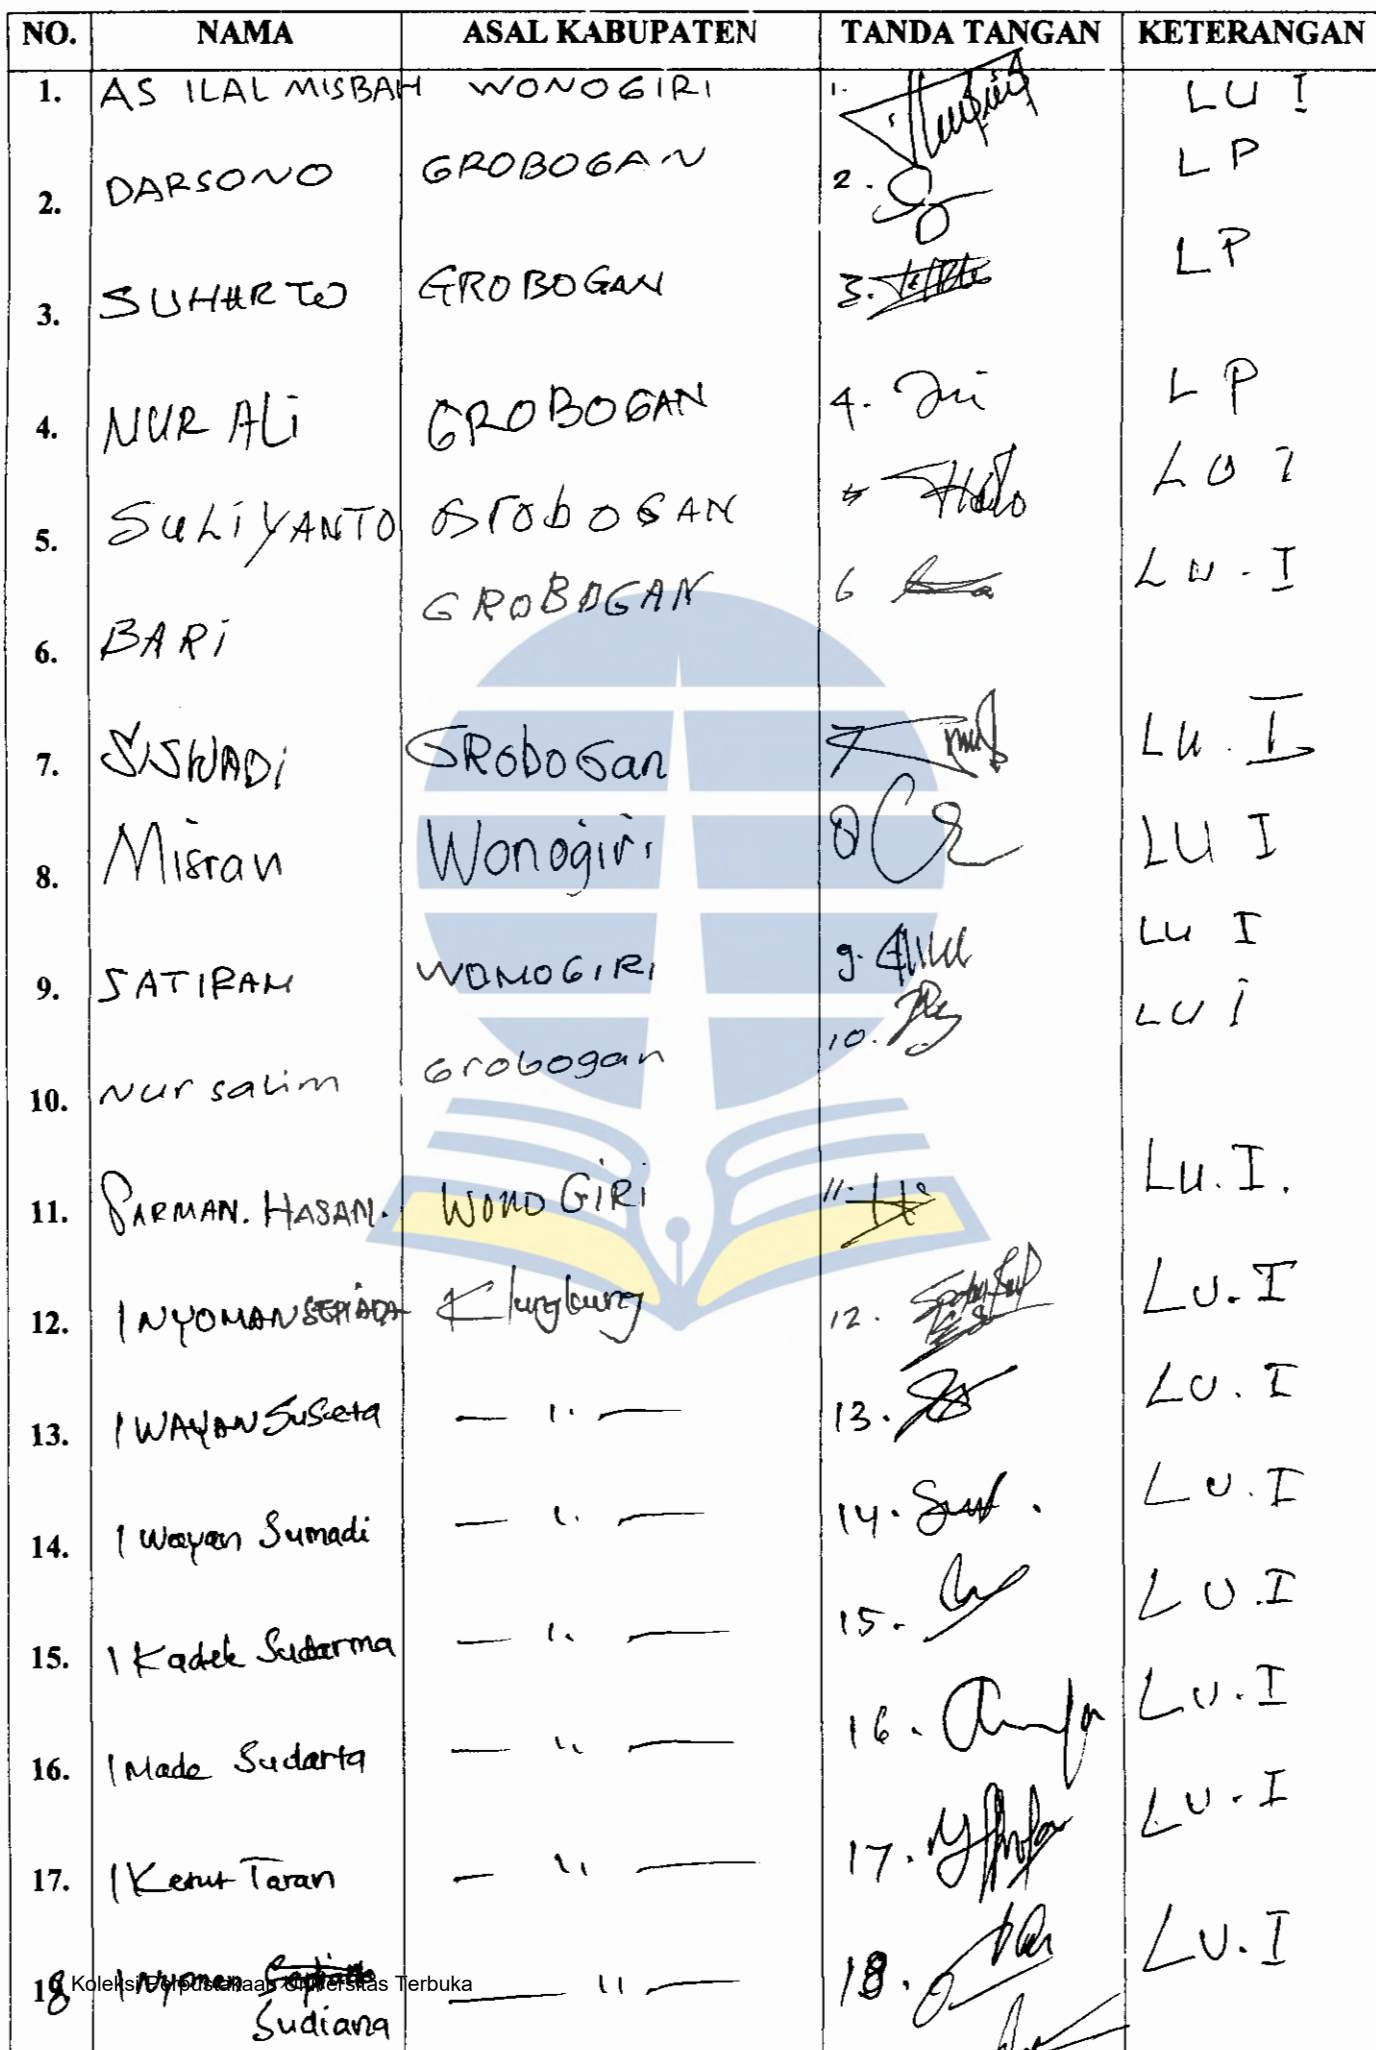 NO. NAMA ASAL KABUPATEN TANDA TANGAN KETERANGAN
1. AS ILAL MISBAH WONOGIRI 1. LU I
2. DARSONO GROBOGAN 2. LP
3. SUHARTO GROBOGAN 3. LP
4. NUR ALi GROBOGAN 4. LP
5. SULiYANTO GroboGAN
6. BARi GROBOGAN 6 LU.I
7. SISWADi GRoboGan 7 LU.I
8. Misran Wonogiri 8 LU I
9. SATIRAN WONOGIRI 9. LU I
10. Nur salim Grobogan 10. LU I
11. PARMAN. HASAN. WONOGiRi 11. LU.I.
12. I NYOMAN Klungkung 12. LU.I
13. I WAYAN Suseta — 11 — 13. LU.I
14. I Wayan Sumadi — 11 — 14. LU.I
15. I Kadek Sudarma — 11 — 15. LU.I
16. I Made Sudarta — 11 — 16. LU.I
17. I Ketut Taran — 11 — 17. LU.I
18 I Nyoman — 11 — 18. LU.I
Koleksi Perpustakaan Universitas Terbuka
Sudiana